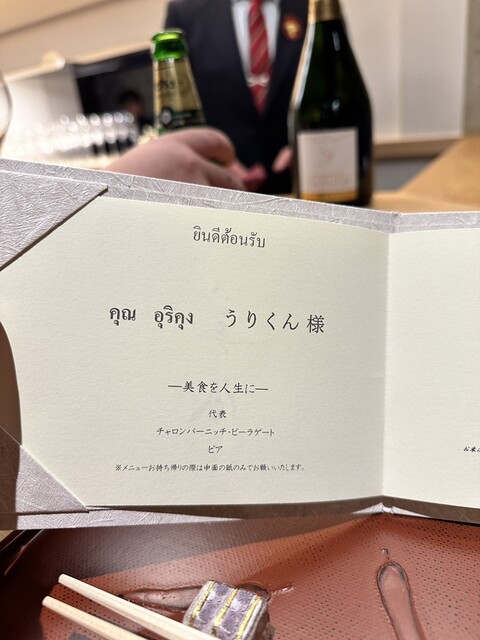 ยินดีต้อนรับ
คุณ อุริคุง うりくん 様
—美食を人生に—
代表
チャロンバーニッチ・ピーラゲート
ピア
※メニューお持ち帰りの際は中面の紙のみでお願いいたします。